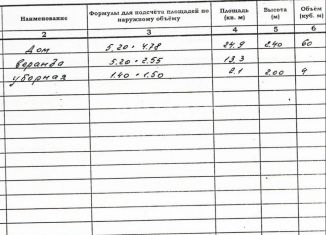 Наименование Формулы для подсчёта площадей по наружному объёму Площадь (кв. м) Высота (м) Объём (куб. м)
2 3 4 5 6
Дом 5.20 · 4.78 24,9 2.40 60
веранда 5.20 · 2.55 13,3
уборная 1.40 · 1.50 2.1 2.00 4